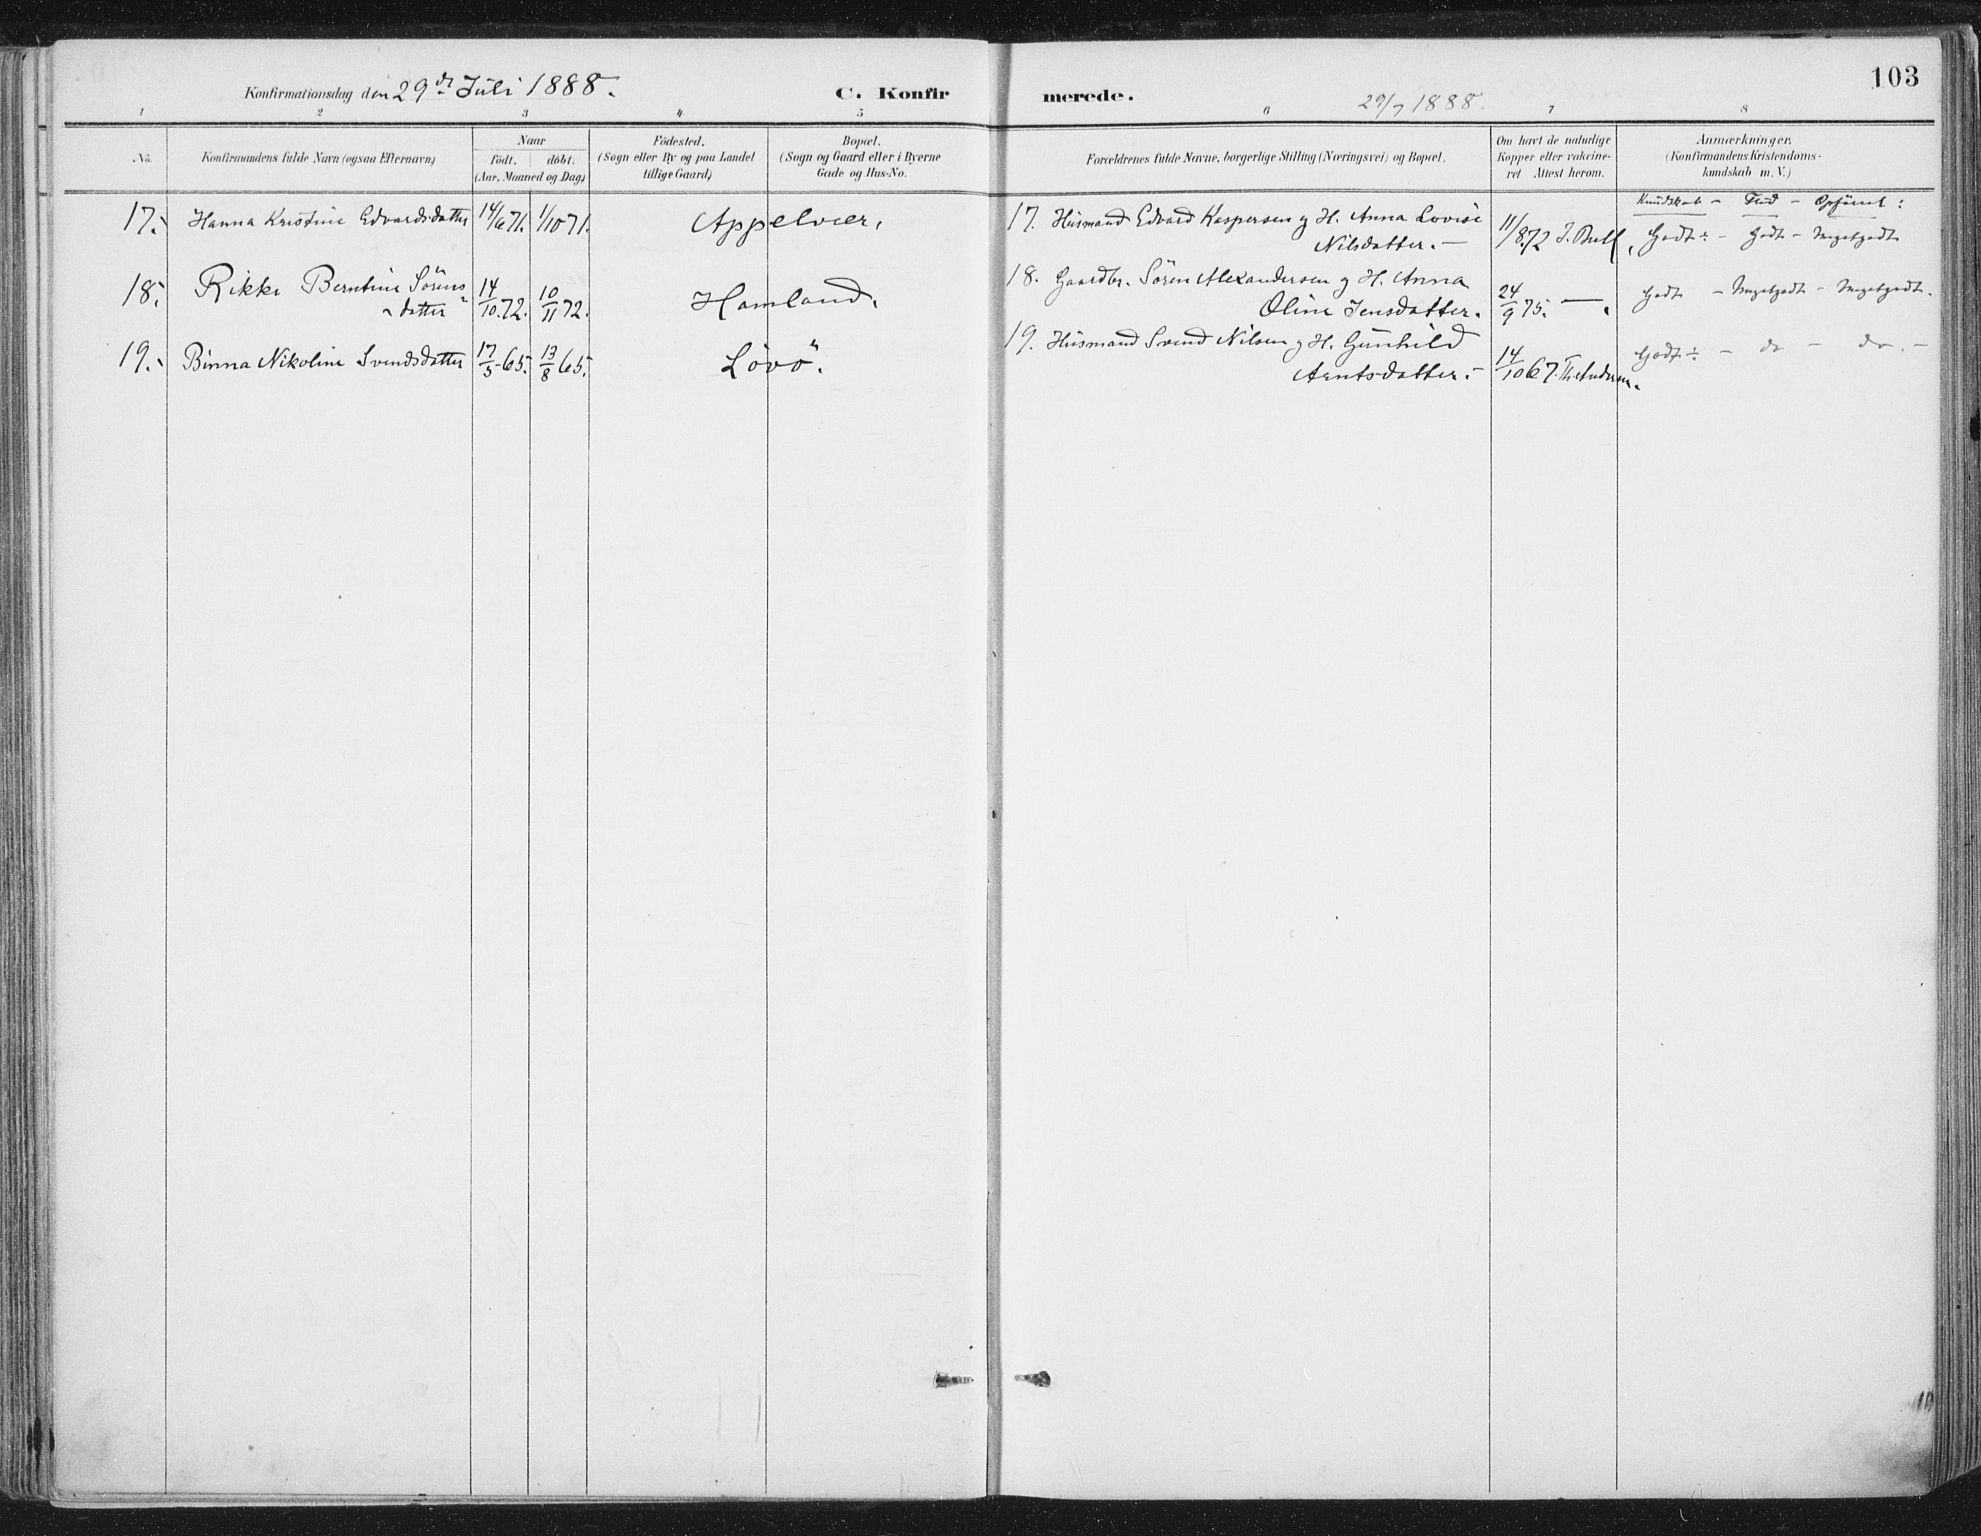 103
Konfirmationsdag den 29de Juli 1888.
C. Konfirmerede.
29/7 1888.
1 2 3 4 5 6 7 8
No.
Konfirmandens fulde Navn (ogsaa Efternavn)
Naar
födt. döbt.
(Aar, Maaned og Dag)
Födested.
(Sogn eller By og paa Landet
tillige Gaard)
Bopæl.
(Sogn og Gaard eller i Byerne
Gade og Hus-No.
Forældrenes fulde Navne, borgerlige Stilling (Næringsvei) og Bopæl.
Om havt de naturlige
Kopper eller vakcine-
ret Attest herom.
Anmærkninger.
(Konfirmandens Kristendoms-
kundskab m. V.)
Kundskab - Flid - Opförsel:
17. Hanna Kristine Edvardsdatter 14/6 71. 1/10 71. Appelvær.
17. Husmand Edvard Kaspersen g H. Anna Lovise
Nilsdatter. — 11/8.72 J. Bull. Godt ÷ - Godt - Megetgodt
18. Rikke Berntine Sörens-
datter 14/10.72. 10/11 72. Hamland.
18. Gaardbr. Sören Alexandersen g H. Anna
Oline Jensdatter. 24/9 75. — Godt - Megetgodt - Megetgodt.
19. Binna Nikoline Svendsdatter 17/5-65. 13/8 65. Lövö.
19. Husmand Svend Nilsen g H. Gunhild
Arntsdatter. - 14/10 67. Th. Andersen. Godt ÷ - do - do. -